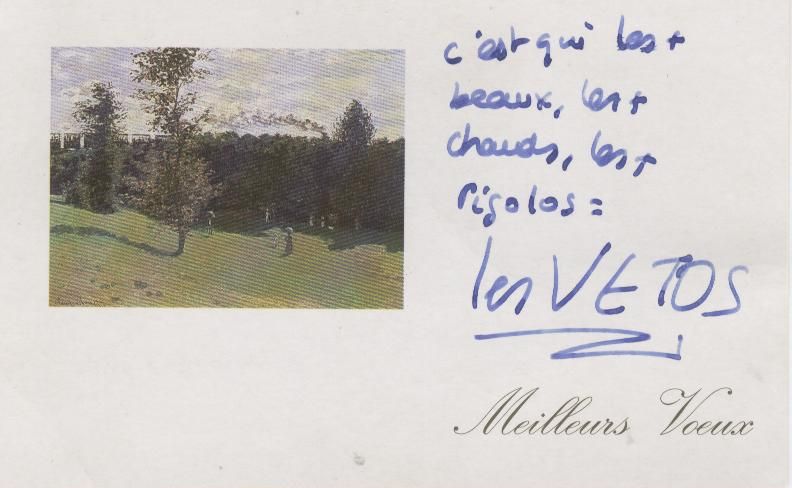 c'est qui les +
beaux, les +
chauds, les +
rigolos :
les VETOS
Meilleurs Voeux